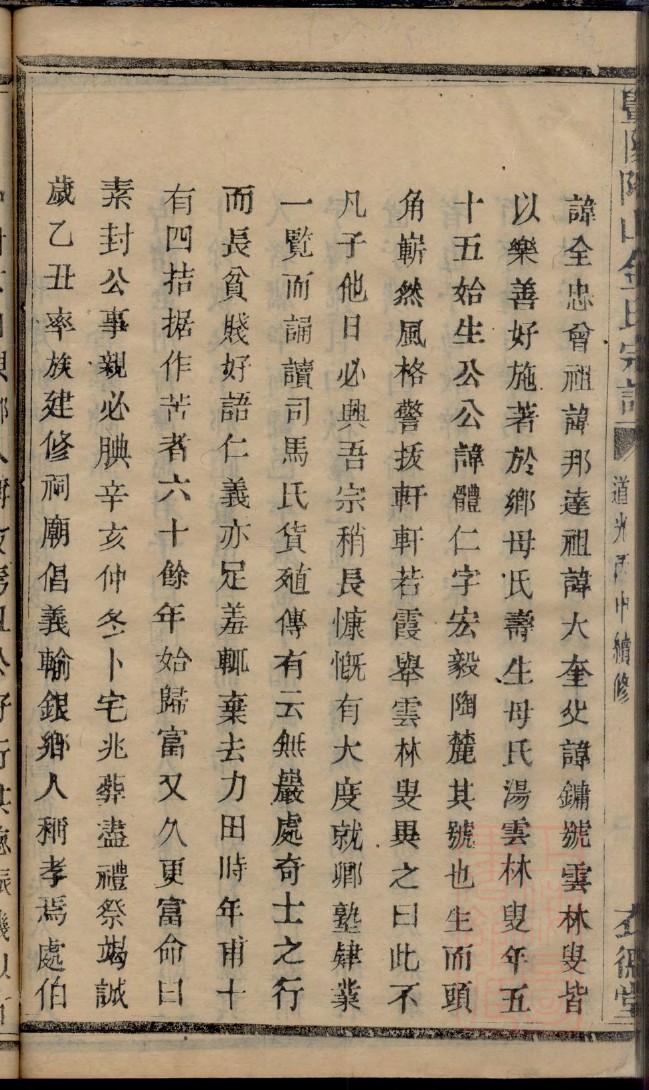 暨陽陶山金氏宗譜 道光丙申續修
諱全忠曾祖諱那達祖諱大奎父諱鏞號雲林叟皆
以樂善好施著於鄉母氏壽生母氏湯雲林叟年五
十五始生公公諱體仁字宏毅陶麓其號也生而頭
角嶄然風格警拔軒軒若霞舉雲林叟異之曰此不
凡子他日必興吾宗稍長慷慨有大度就鄉塾肄業
一覧而誦讀司馬氏貨殖傳有云無巖處奇士之行
而長貧賤好語仁義亦足羞輒棄去力田時年甫十
有四拮据作苦者六十餘年始歸富又久更富命曰
素封公事親必腆辛亥仲冬卜宅兆葬盡禮祭竭誠
歲乙丑率族建修祠廟倡義輸銀鄉人稱孝焉處伯